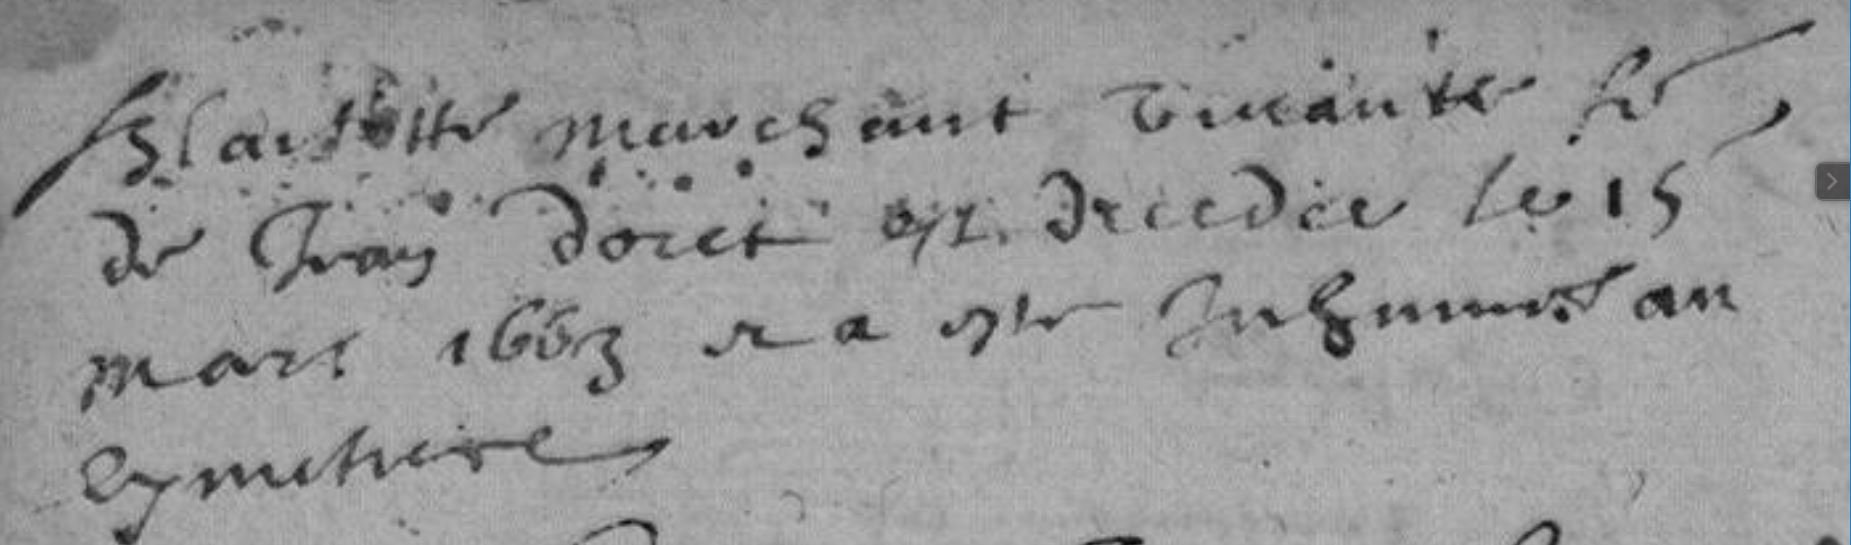 Glaudette marchant vivante fe
de Jean Doret est decedee le 15
mars 1663 et a este Inhumee au
Cymetiere